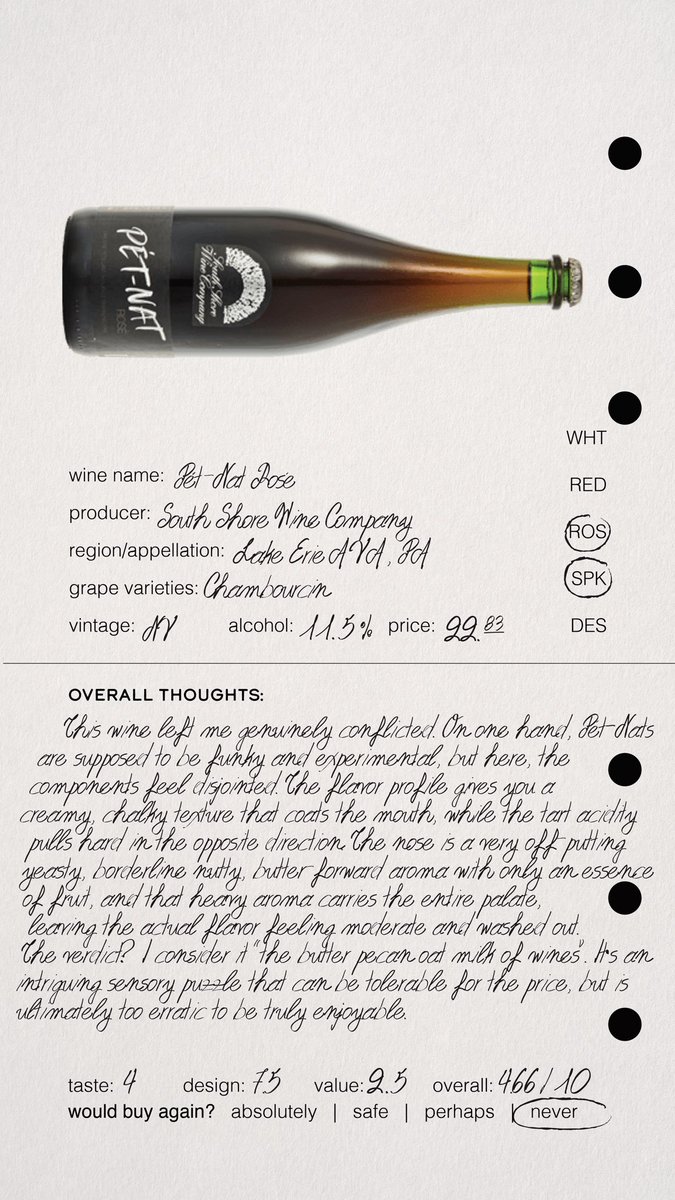 PÉT-NAT
ROSÉ
South Shore
Wine Company
WHT
wine name: Pét-Nat Rosé
RED
producer: South Shore Wine Company
ROS
region/appellation: Lake Erie AVA, PA
SPK
grape varieties: Chambourcin
vintage: NV alcohol: 11.5% price: 22.83
DES
OVERALL THOUGHTS:
This wine left me genuinely conflicted. On one hand, Pet-Nats
are supposed to be funky and experimental, but here, the
components feel disjointed. The flavor profile gives you a
creamy, chalky texture that coats the mouth, while the tart acidity
pulls hard in the opposite direction. The nose is a very off putting
yeasty, borderline nutty, butter forward aroma with only an essence
of fruit, and that heavy aroma carries the entire palate,
leaving the actual flavor feeling moderate and washed out.
The verdict? I consider it "the butter pecan oat milk of wines". It's an
intriguing sensory puzzle that can be tolerable for the price, but is
ultimately too erratic to be truly enjoyable.
taste: 4 design: 7.5 value: 2.5 overall: 4.66/10
would buy again? absolutely | safe | perhaps | never